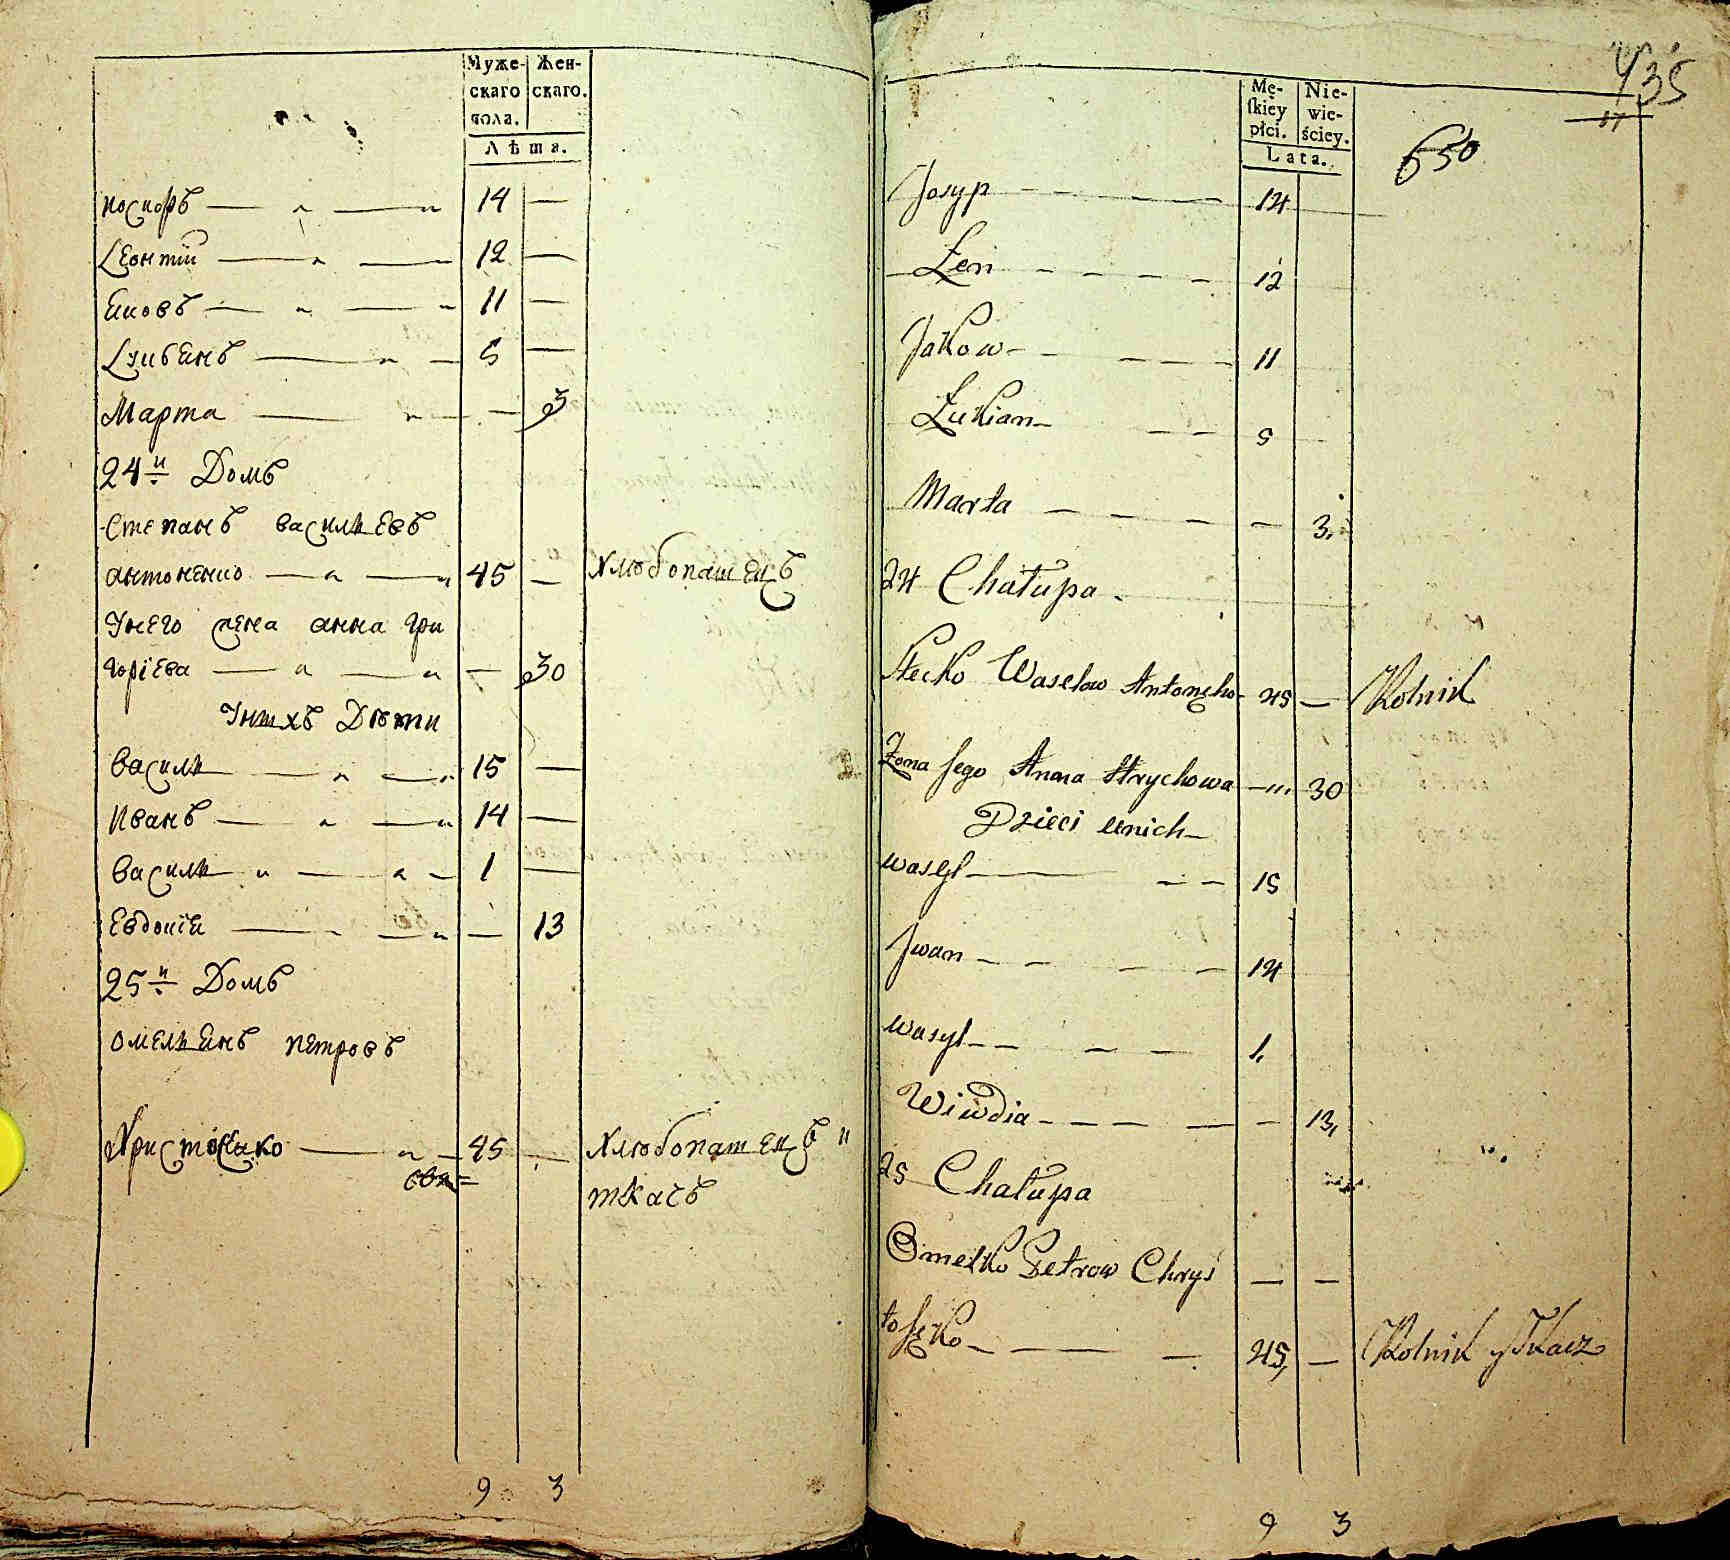 Муже-
скаго
пола.
Жен-
скаго.
Лѣта.
иосипъ — „ — „ 14 —
Леонтіи — „ — 12 —
Яковъ — „ — „ 11 —
Лукьянъ — „ — 5 —
Марта — „ — 3
24й Домъ
Степанъ васильевъ
антоненко — „ — „ 45 — хлѣбопашецъ
Унего жена анна гри
горіева — „ — „ — 30
Унихъ Дѣти
василь — „ — „ 15 —
иванъ — „ — „ 14 —
василь „ — „ — 1 —
Евдокія — „ — „ — 13
25й Домъ
омельянъ петровъ
христосенко — „ — 45 — хлѣбопашецъ и
ткачъ
9 3
435
17
650
Mę-
skiey
płci.
Nie-
wie-
ściey.
Lata.
Josyp — — — — 14
Łen — — — — — 12
Jakow — — — — 11
Łukian — — — 5
Marta — — — — — 3.
24 Chałupa.
Stecko Waselow Antonęko 45 — Rolnik
Zona Jego Anna Hrychowa — 30
Dzieci unich
wasyl — — — 15
Jwan — — — — 14
wasyl — — — — 1.
Wiwdia — — — — — — 13,
25 Chałupa
Omelko Petrow Chrys — —
tosęko — — — 45, — Rolnik y Tkacz
9 3